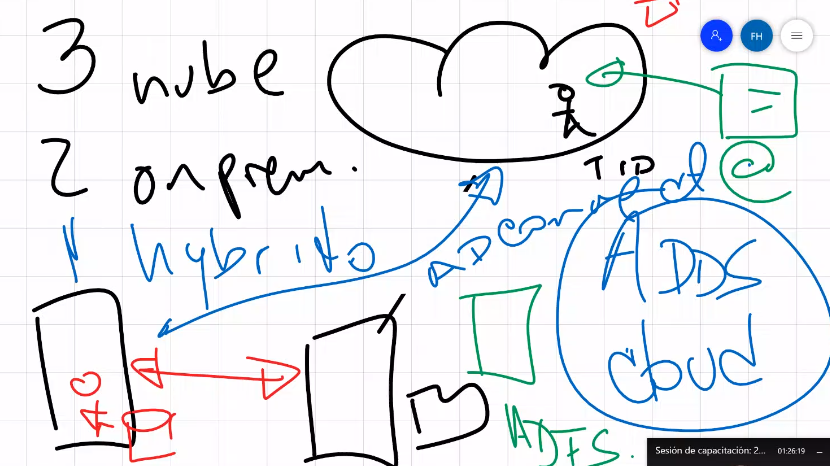 3 nube
2 onprem.
1 hybrito
TID
AD connect
ADDS
cloud
ADFS.
FH
Sesión de capacitación: 2...
01:26:19